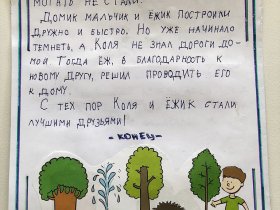 МОГАТЬ НЕ СТАЛИ.
ДОМИК МАЛЬЧИК И ЁЖИК ПОСТРОИЛИ
ДРУЖНО И БЫСТРО. НО УЖЕ НАЧИНАЛО
ТЕМНЕТЬ, А КОЛЯ НЕ ЗНАЛ ДОРОГИ ДО-
МОЙ. ТОГДА ЁЖ, В БЛАГОДАРНОСТЬ К
НОВОМУ ДРУГУ, РЕШИЛ ПРОВОДИТЬ ЕГО
К ДОМУ.
С ТЕХ ПОР КОЛЯ И ЁЖИК СТАЛИ
ЛУЧШИМИ ДРУЗЬЯМИ!
-КОНЕЦ-